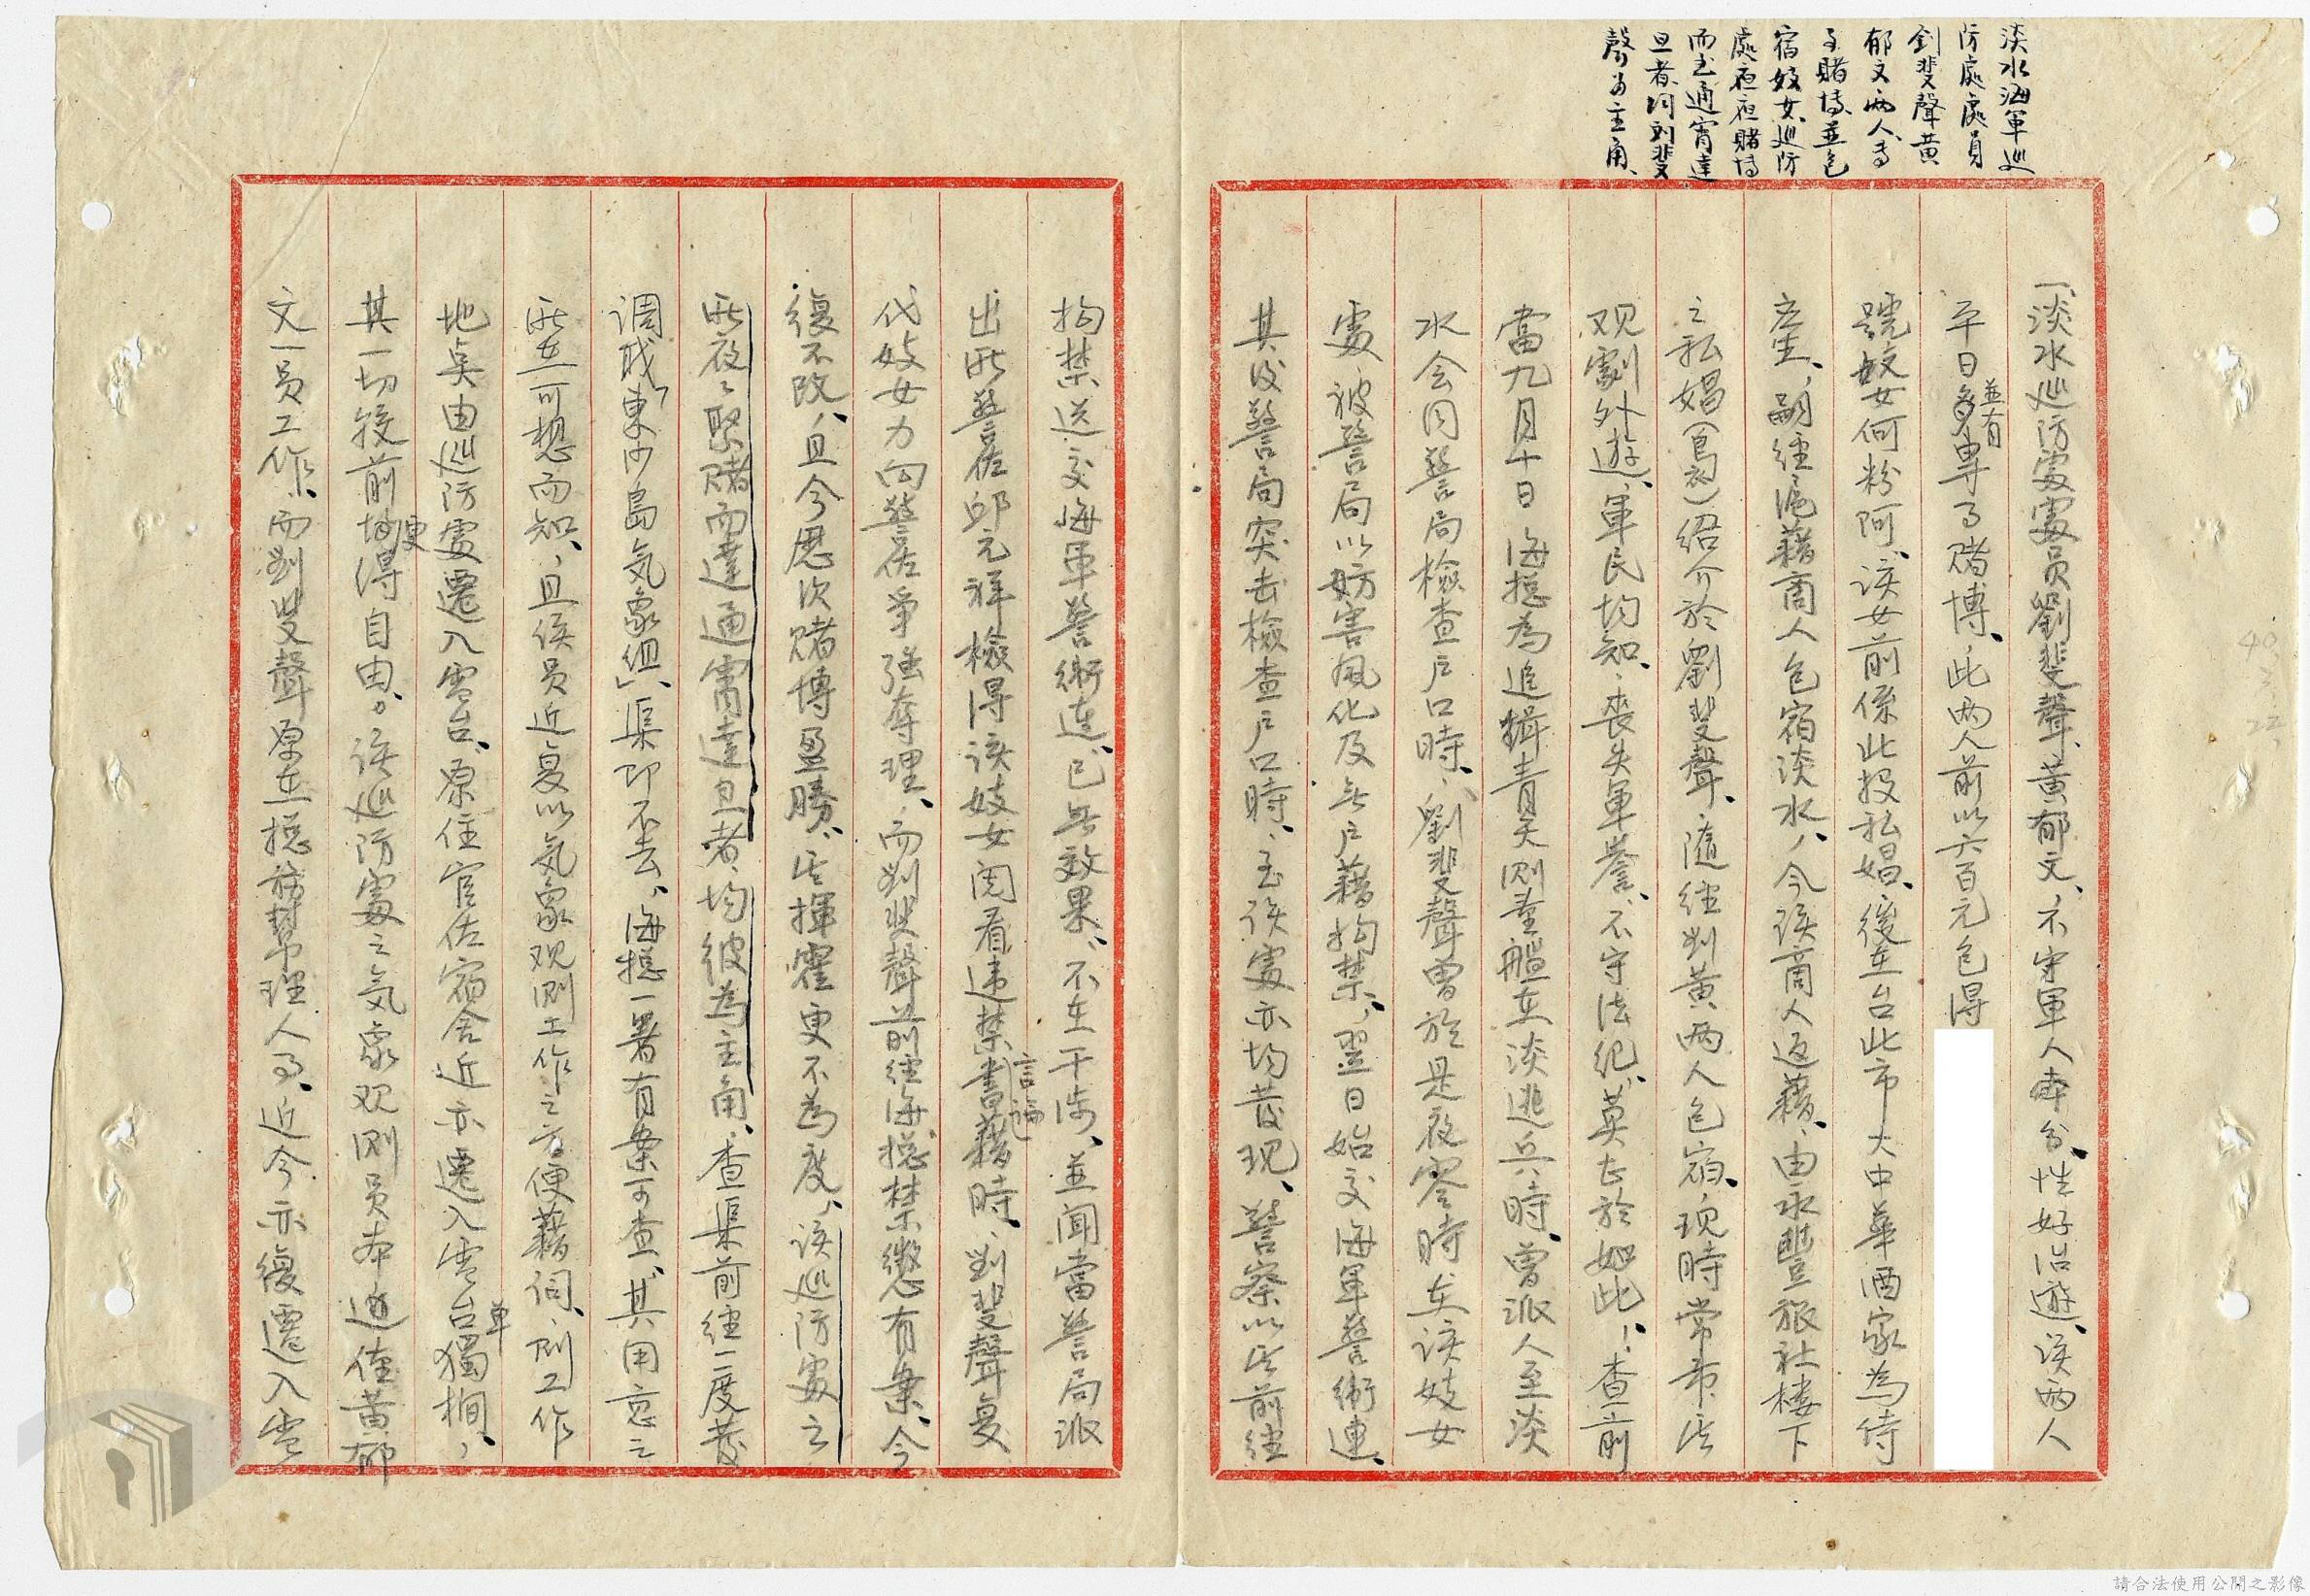 淡水海軍巡
防處處員
劉斐聲黃
郁文兩人專
事賭博並包
宿妓女巡防
處夜夜賭博
而至通宵達
旦者均劉斐
聲為主角、
一、淡水巡防處處員劉斐聲、黃郁文、不守軍人本分、性好冶遊、該兩人
平日並有專事賭博、此兩人前以六百元包得
號妓女何粉阿、該女前係此投私娼、後在台北市大中華酒家為侍
產生、嗣經滬藉商人包宿淡水、今該商人返藉、由永豐旅社樓下
之私娼()紹介於劉斐聲、隨經劉黃兩人包宿、現時常帶
观劇外遊、軍民均知、喪失軍譽、不守法紀、莫甚於如此、查前
當九月十日海總為追緝青天測量艦在淡逃兵時、曾派人至淡
水会同警局檢查户口時、劉斐聲曾於是夜零時在該妓女
處被警局以妨害風化及無户藉拘禁、翌日始交海軍警衛連、
其後警局突击檢查户口時、至該處亦均發現、警察以前經
拘禁送交海軍警衛連、已無效果、不在干涉、並聞當警局派
出所警佐邱元祥檢得該妓女閱看違禁書藉言論時、劉斐聲复
代妓女力向警佐爭強奪理、而劉斐聲前經海總禁懲有案、今
復不改、且今歷次賭博盈勝、揮霍更不為度、該巡防處之
所夜、聚賭而達通宵達旦者、均彼為主角、查渠前經二度發
調職「東沙島气象组」、渠即不去、海總一署有案可查、其用意之
所在可想而知、且該員近复以氣象观測工作之方便藉词、則工作
地矣由巡防處遷入雷台、原住官佐宿舍近亦遷入雷台單獨櫚、
其一切較前均更得自由。該巡防處之氣象观测员本通值黃郁
文一员工作、而劉斐聲原在總務幫理人事、近今亦復遷入雷
40
3
22
請合法使用公開之影像